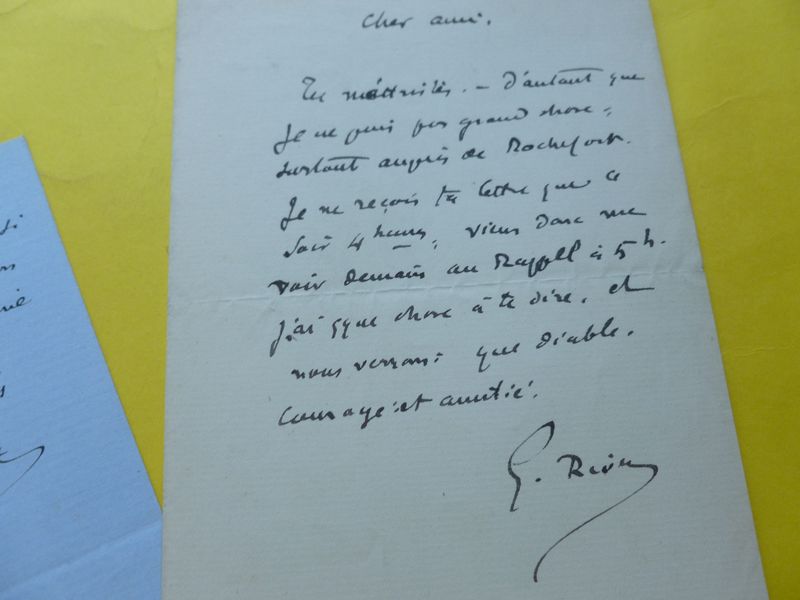 Cher ami.
Tu m'attristes. — D'autant que
Je ne puis pas grand chose,
surtout auprès de Rochefort.
Je ne reçois ta lettre que ce
soir 4 heures, viens donc me
voir demain au Rappel à 5 h.
J'ai qque chose à te dire, et
nous verrons: que diable.
Courage: et amitié.
G.